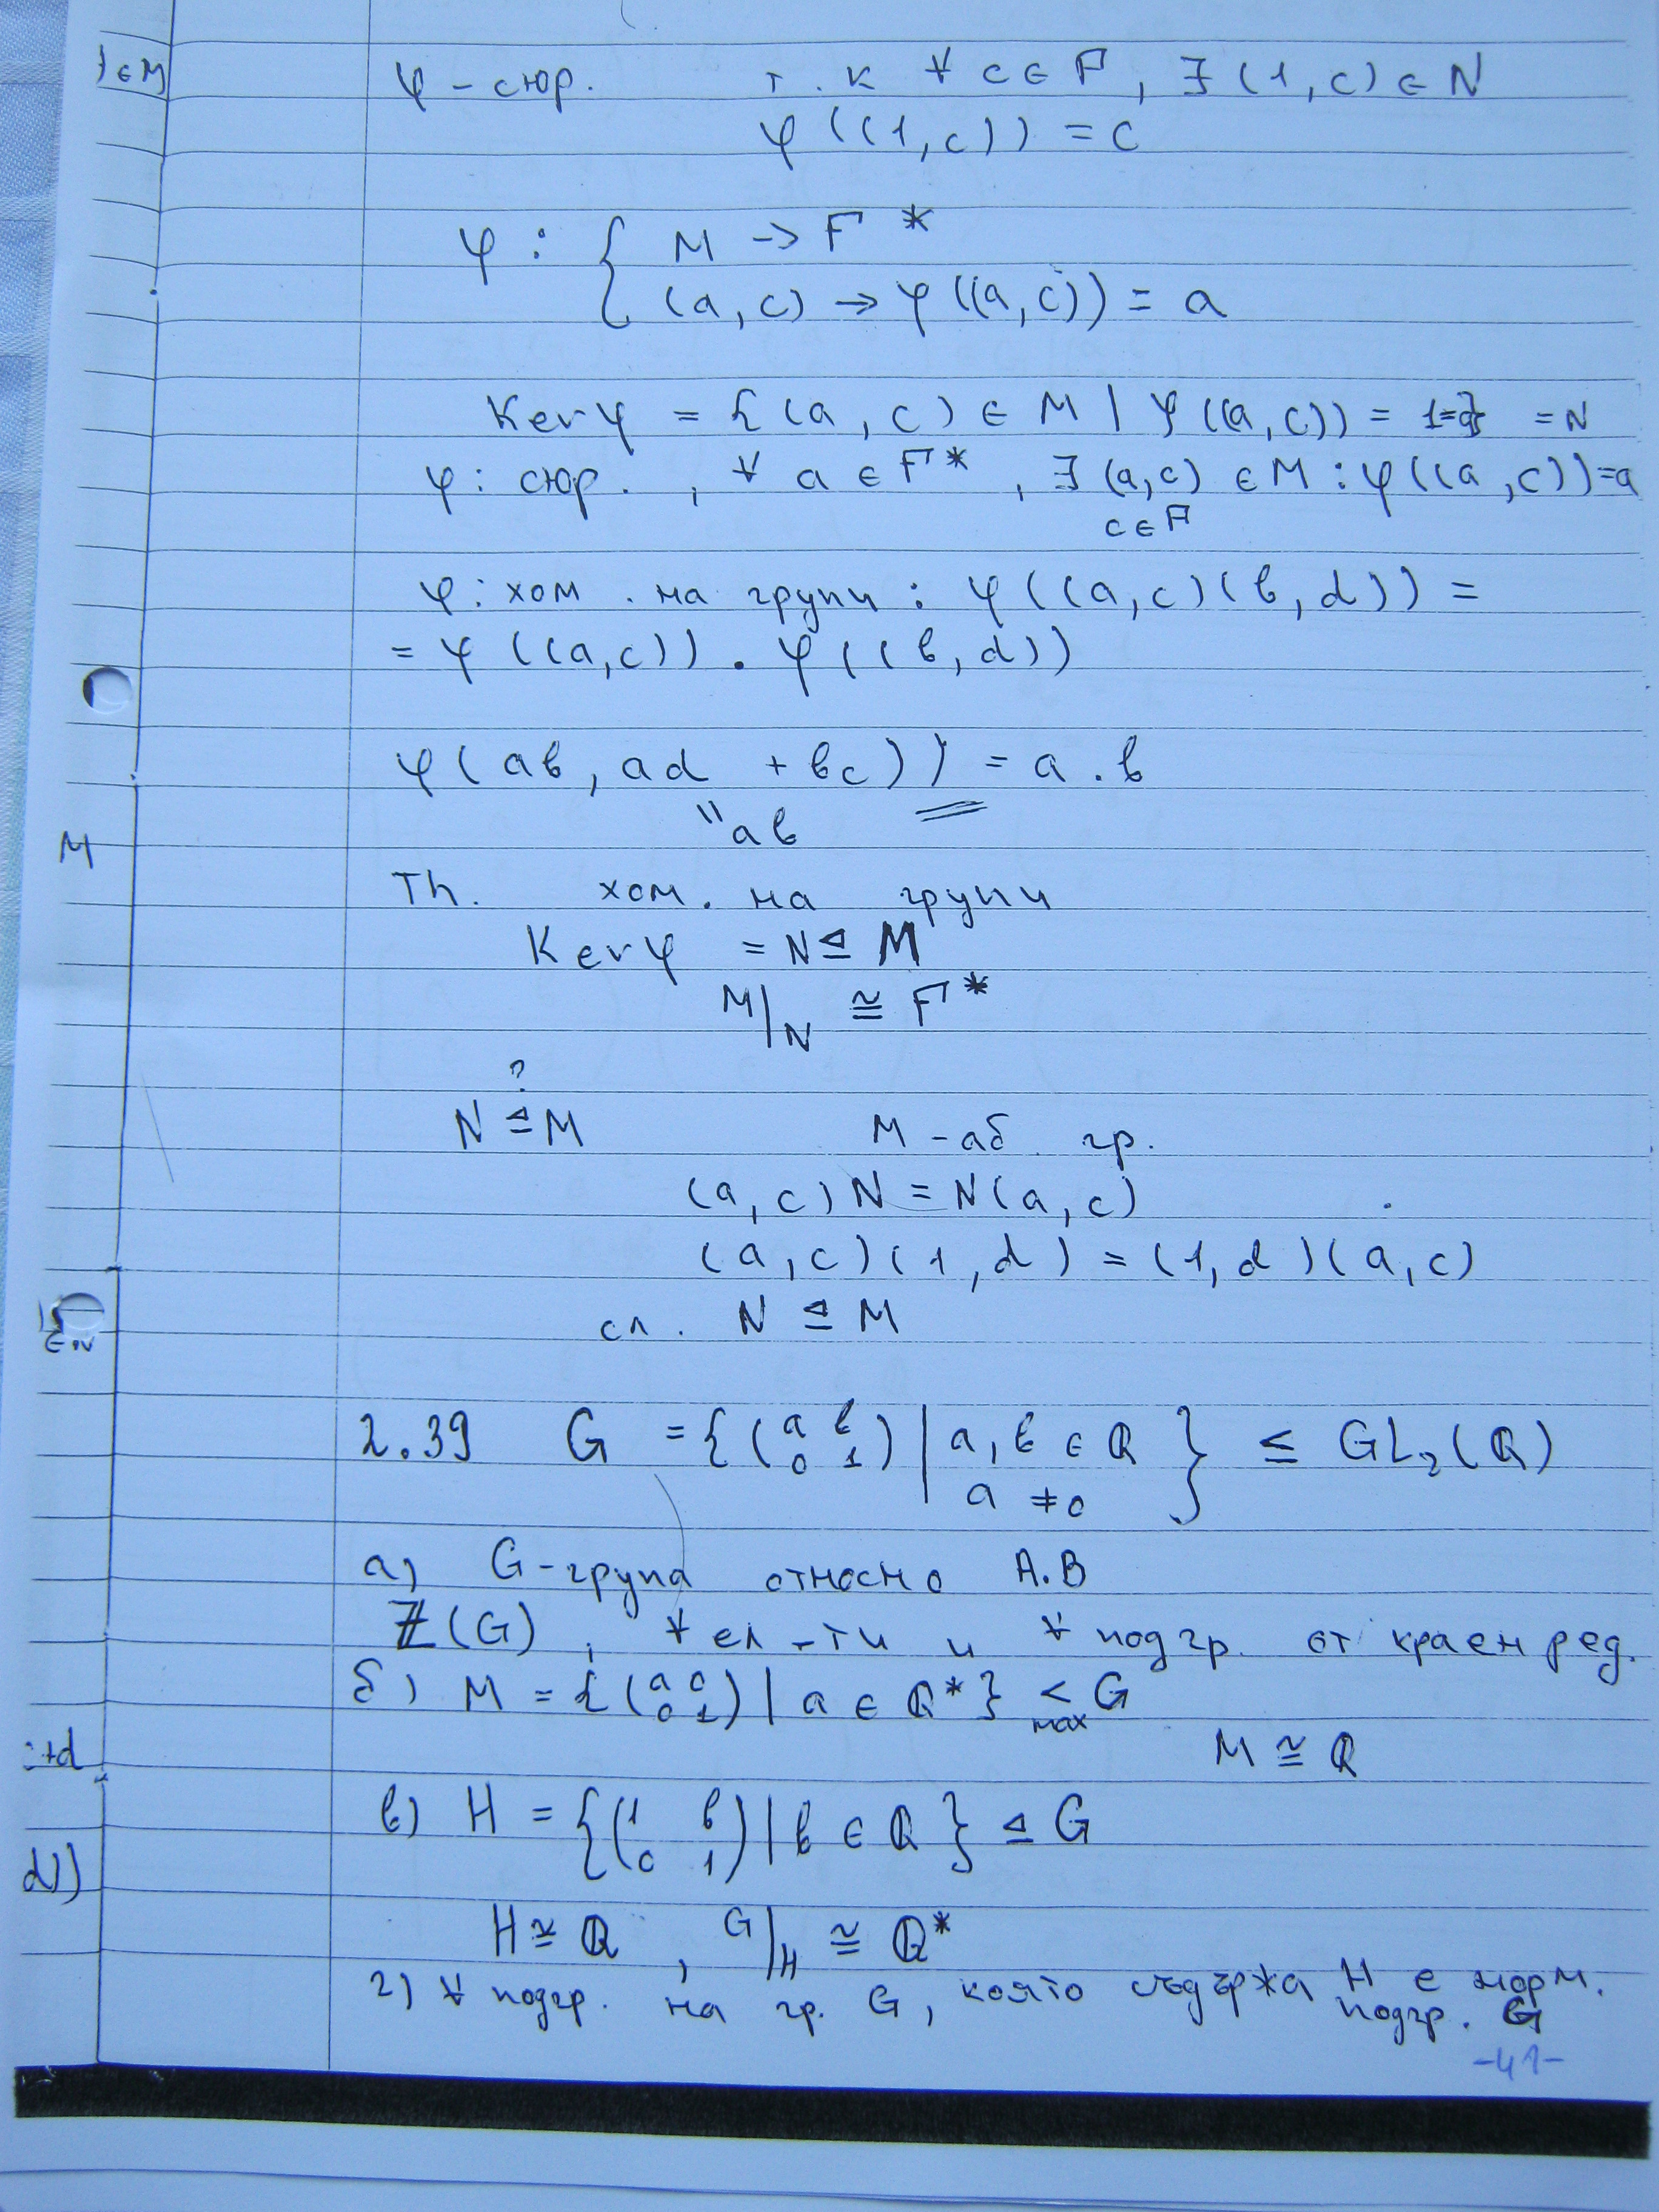 φ - сюр. т.к ∀ c ∈ F, ∃ (1, c) ∈ N
φ((1, c)) = c
φ: { M → F*
(a, c) → φ((a, c)) = a
Ker φ = {(a, c) ∈ M | φ((a, c)) = 1=a} = N
φ: сюр., ∀ a ∈ F*, ∃ (a, c) ∈ M : φ((a, c)) = a
c ∈ F
φ: хом. на групи : φ((a, c)(b, d)) =
= φ((a, c)) . φ((b, d))
φ(ab, ad + bc)) = a . b
"ab
Th. хом. на групи
Ker φ = N ⊴ M
M/N ≅ F*
?
N ⊴ M M - аб гр.
(a, c) N = N (a, c)
(a, c)(1, d) = (1, d)(a, c)
сл. N ⊴ M
2.39 G = {(a b
0 1) | a, b ∈ Q
a ≠ 0} ≤ GL₂(Q)
а) G - група относно A.B
Z(G), ∀ ел-ти и ∀ подгр. от краен ред.
б) M = {(a 0
0 1) | a ∈ Q*} < G
max
M ≅ Q
в) H = {(1 b
0 1) | b ∈ Q} ⊴ G
H ≅ Q, G/H ≅ Q*
г) ∀ подгр. на гр. G, която съдържа H е норм.
подгр. G
-41-
∈ M
M
∈ N
+d
d))